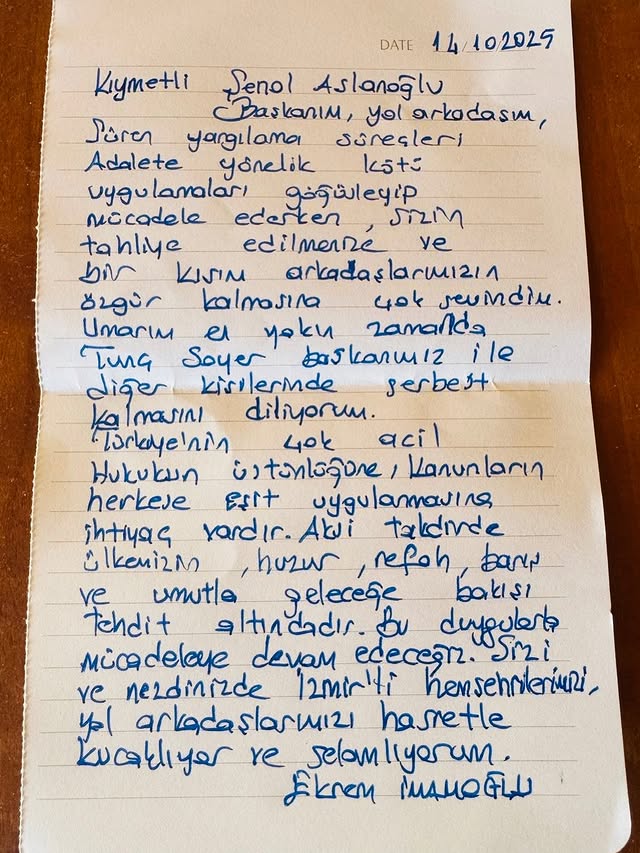 DATE 14/10/2025
Kıymetli Şenol Aslanoğlu
Başkanım, yol arkadaşım,
Süren yargılama süreçleri
Adalete yönelik kötü
uygulamaları göğüsleyip
mücadele ederken, sizin
tahliye edilmenize ve
bir kısım arkadaşlarımızın
özgür kalmasına çok sevindim.
Umarım en yakın zamanda
Tunç Soyer başkanımız ile
diğer kişilerinde serbest
kalmasını diliyorum.
Türkiye'nin çok acil
Hukukun üstünlüğüne, kanunların
herkese eşit uygulanmasına
ihtiyaç vardır. Aksi takdirde
ülkemizin, huzur, refah, barış
ve umutla geleceğe bakışı
tehdit altındadır. Bu duygularla
mücadeleye devam edeceğiz. Sizi
ve nezdinizde İzmir'li hemşehrilerimizi,
yol arkadaşlarımızı hasretle
kucaklıyor ve selamlıyorum.
Ekrem İMAMOĞLU